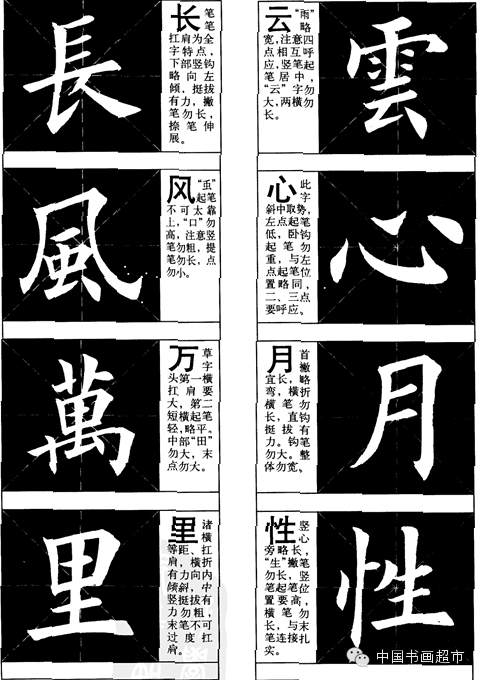 長
长 笔
笔
扛肩为全
字特点，
下部竖钩
略向左
倾，挺拔
有力，撇
笔勿长，
捺笔伸
展。
風
风 “䖝”
起笔
不可太靠
上，“口”勿
高，注意竖
笔勿粗，提
笔勿长，点
勿小。
萬
万 草
字
头第一横
扛肩要
大，第二
短横起笔
轻，略平。
中部“田”
勿大，末
点勿大。
里
里 渚
横
等距、扛
肩，横折
有力向内
倾斜，中
竖挺拔有
力勿粗，
末笔不可
过度扛
肩。
云 “雨”
略
宽，注意四
点相互呼
应，竖笔起
笔居中，
“云”字勿
大，两横勿
长。
雲
心 此
字
斜中取势，
左点起笔
低，卧钩
起笔勿
重，与左
点起笔位
置略同，
二、三点
要呼应。
心
月 首
撇
宜长，略
弯，横折
横笔勿
长，直钩
挺拔有
力。钩笔
勿大。整
体勿宽。
月
性 竖
心
旁略长，
“生”撇笔
勿长，竖
笔起笔位
置要高，
横笔勿
长，与末
笔连接扎
实。
性
中国书画超市